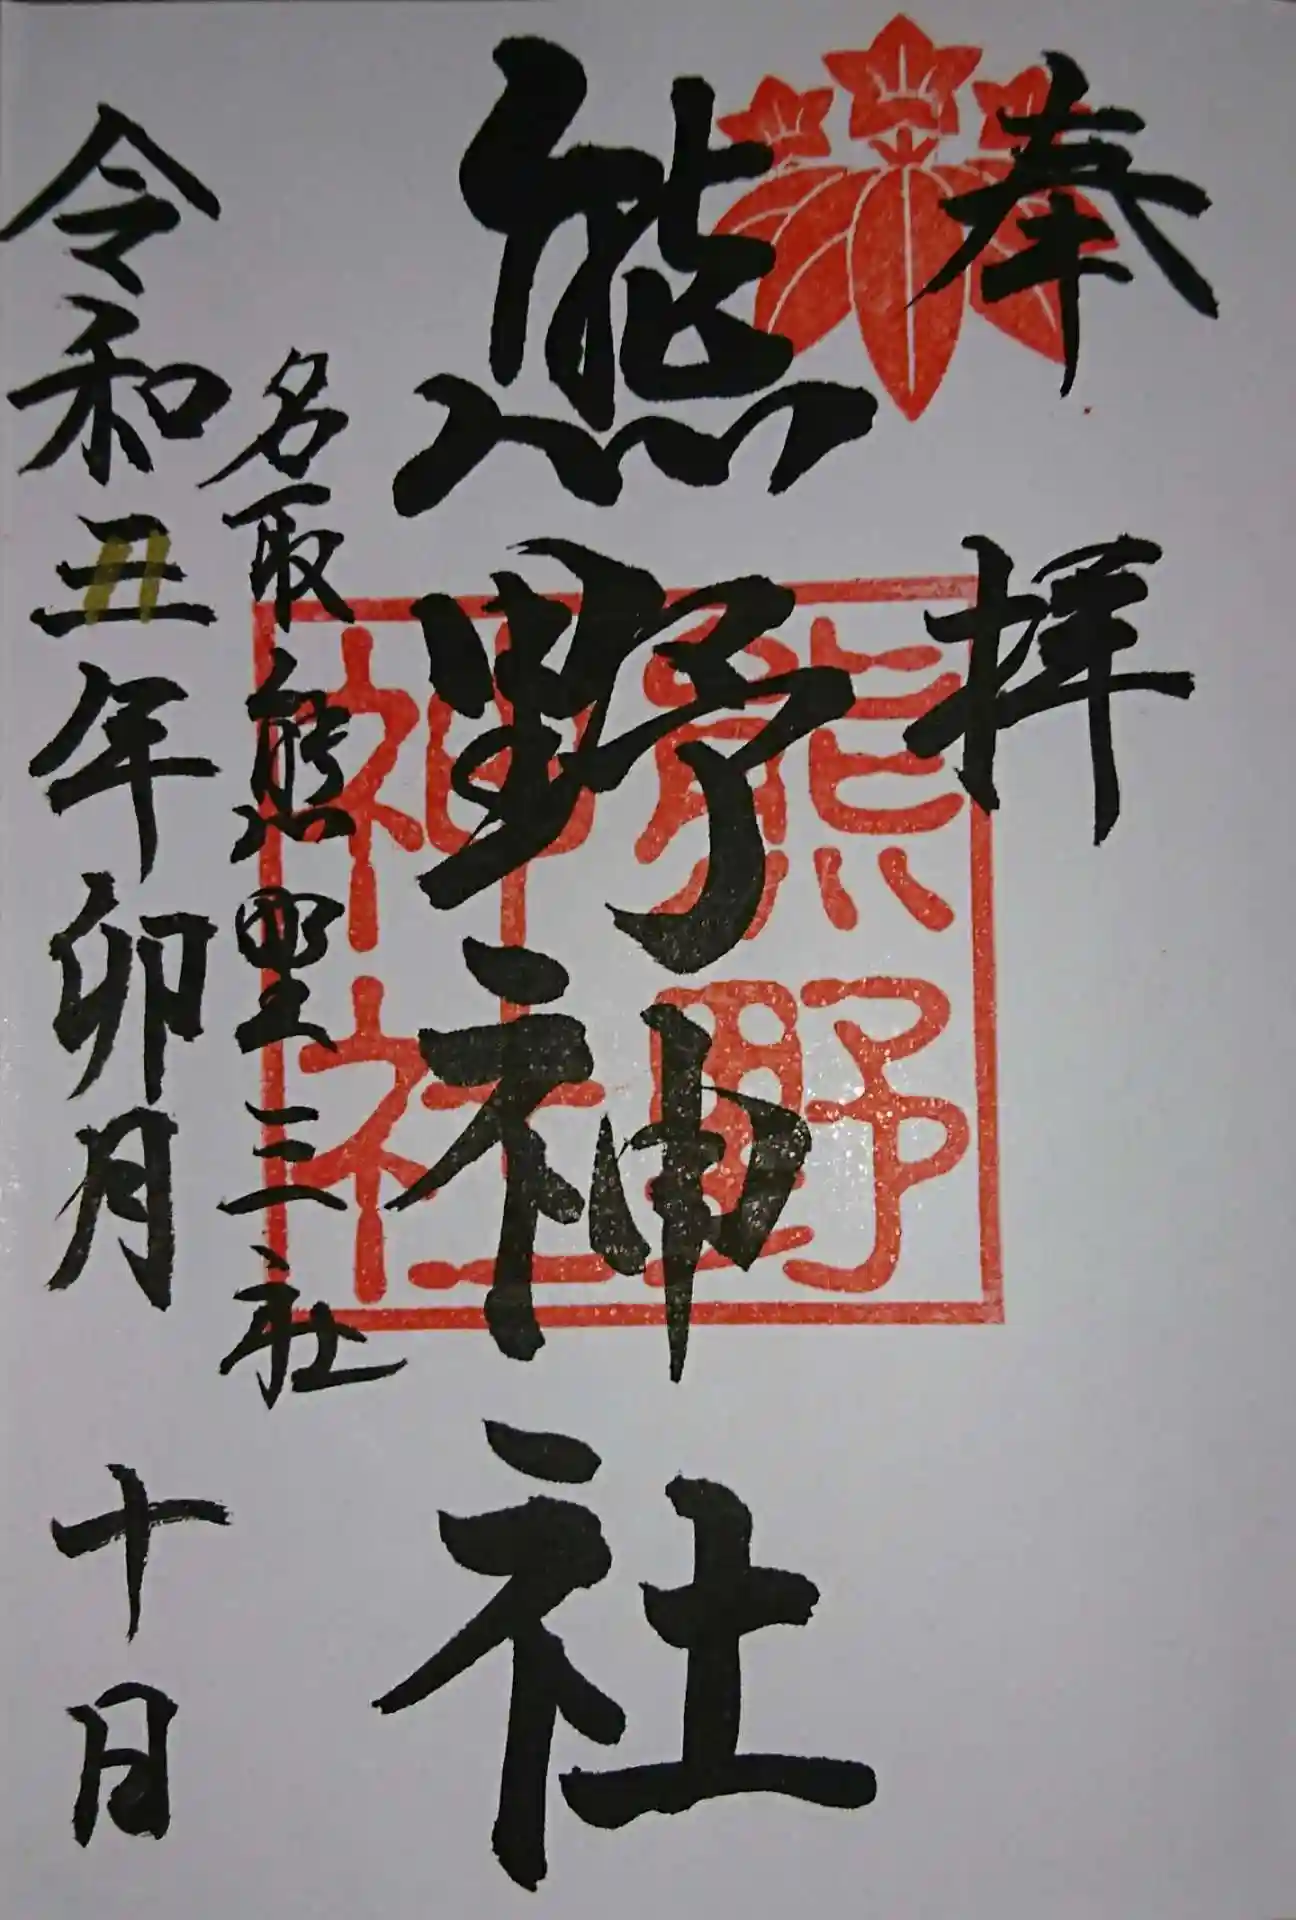 奉拝
熊野神社
熊野
神社
名取熊野三社
令和丑年卯月十日